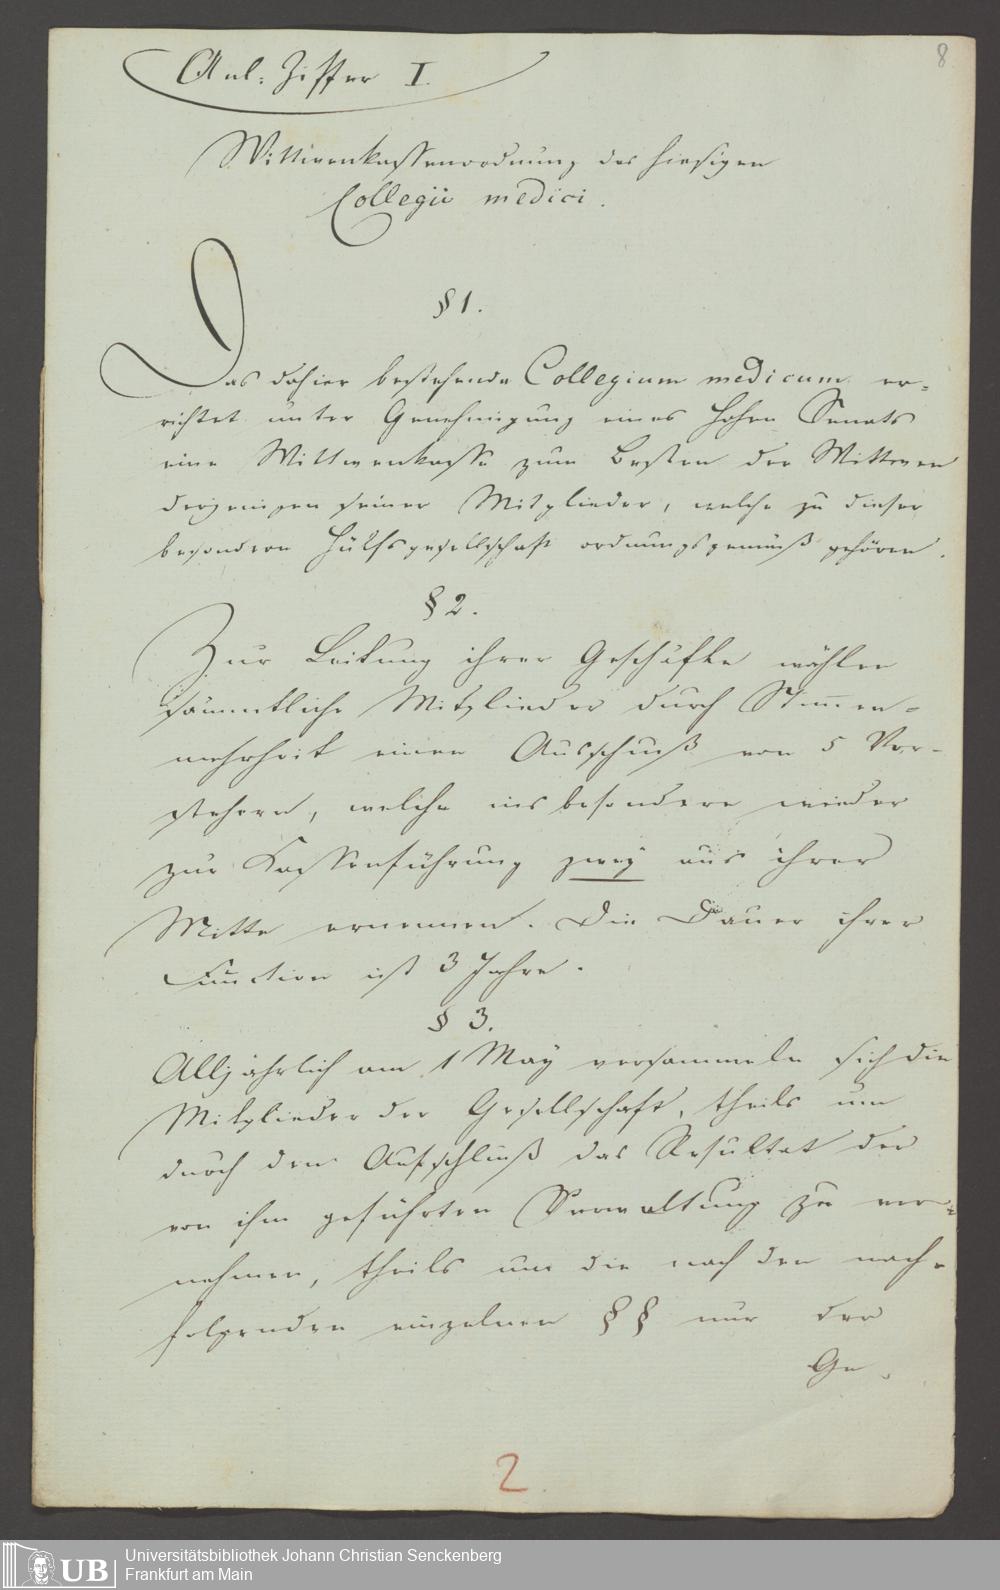 8.
Anl: Ziffer I.
Wittwenkassenordnung des hiesigen
Collegii medici.
§ 1.
Das dahier bestehende Collegium medicum er=
richtet unter Genehmigung eines Hohen Senats
eine Wittwenkasse zum Besten der Wittwen
derjenigen seiner Mitglieder, welche zu dieser
besondern Hülfsgesellschaft ordnungsgemäß gehören.
§ 2.
Zur Leitung ihrer Geschäfte wählen
sämmtliche Mitglieder durch Stim̅en=
mehrheit einen Ausschuß von 5 Vor-
stehern, welche insbesondere wieder
zur Kassenführung zwey aus ihrer
Mitte ernennen. Die Dauer ihrer
Function ist 3 Jahre.
§ 3.
Alljährlich am 1 May versammeln sich die
Mitglieder der Gesellschaft, theils um
durch den Ausschuß das Resultat der
von ihm geführten Verwaltung zu ver=
nehmen, theils um die nach den nach=
folgenden einzelnen §§ nur der
Ge=
2
UB
Universitätsbibliothek Johann Christian Senckenberg
Frankfurt am Main